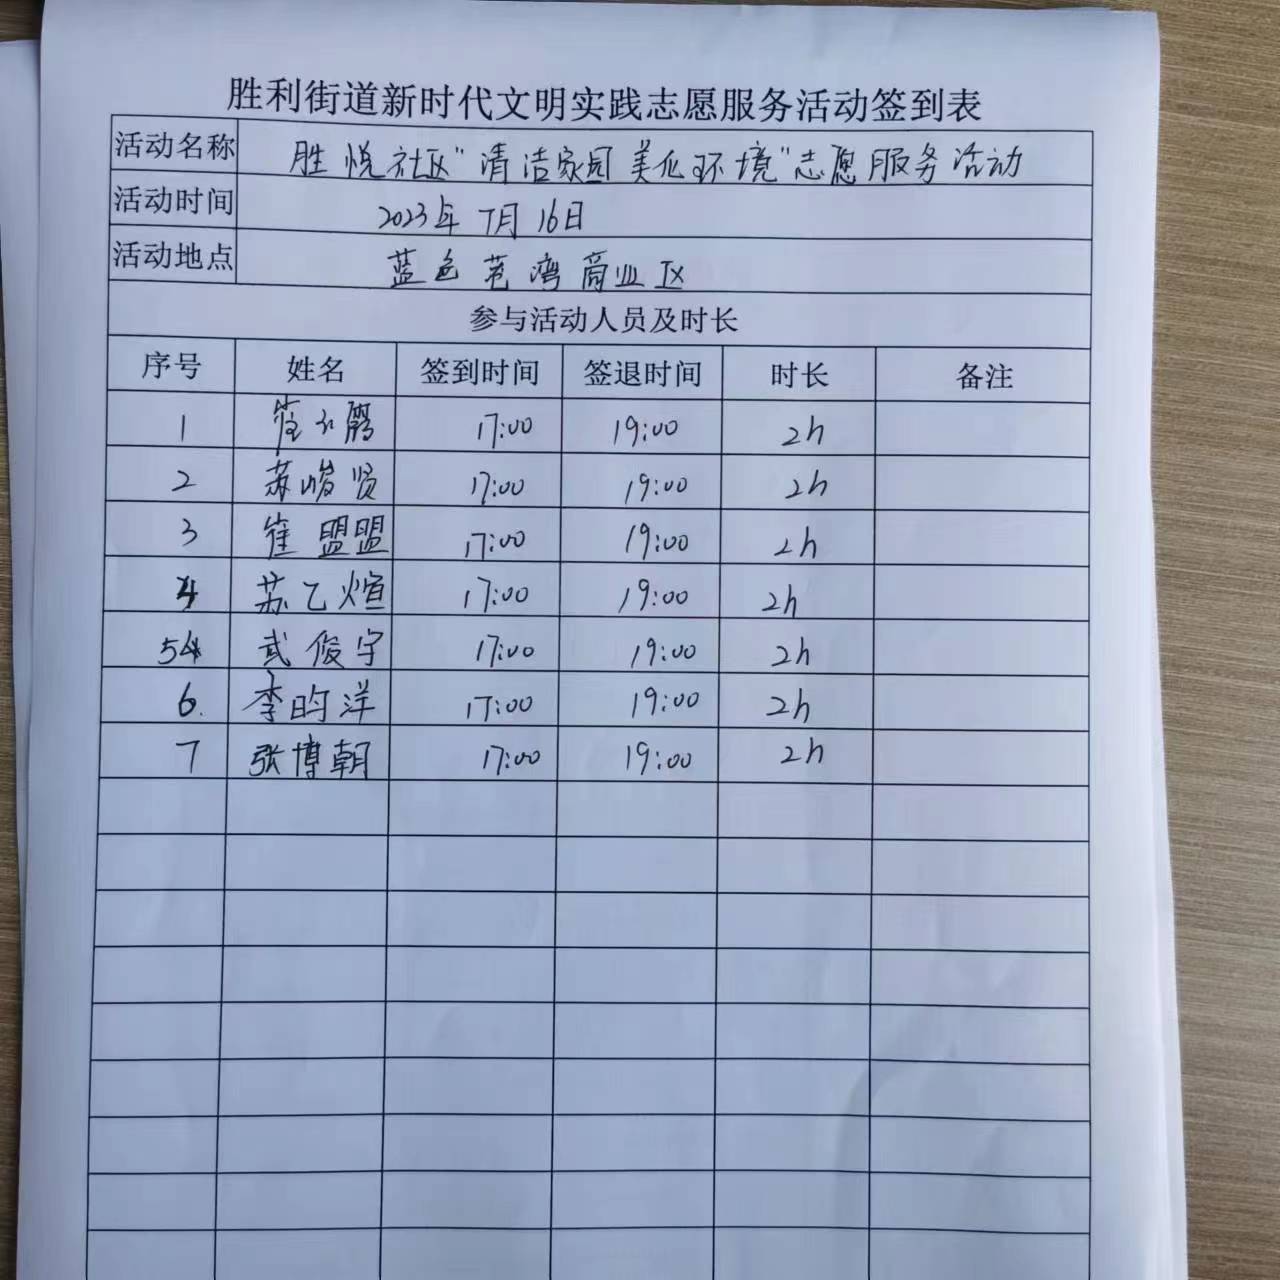 胜利街道新时代文明实践志愿服务活动签到表
活动名称 胜悦社区"清洁家园美化环境"志愿服务活动
活动时间 2023年7月16日
活动地点 蓝色港湾商业区
参与活动人员及时长
序号 姓名 签到时间 签退时间 时长 备注
1 17:00 19:00 2h
2 苏峻贤 17:00 19:00 2h
3 崔盟盟 17:00 19:00 2h
4 苏乙煊 17:00 19:00 2h
5 武俊宇 17:00 19:00 2h
6. 李昀洋 17:00 19:00 2h
7 张博朝 17:00 19:00 2h